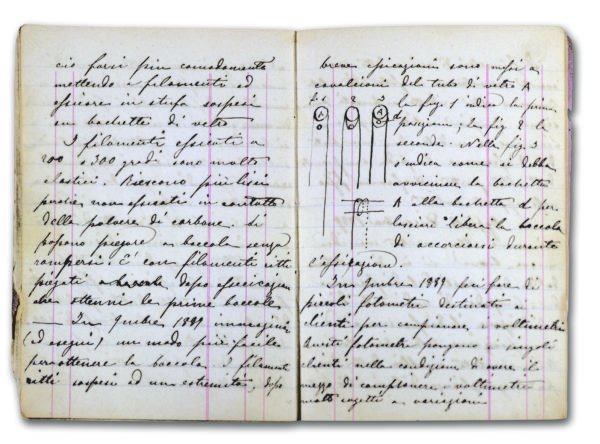 ciò farsi più comodamente
mettendo i filamenti ad
essicare in stufa sospesi
su bachette di vetro
I filamenti essicati a
200 o 300 gradi sono molto
elastici. Riescono più lisci
perchè non essicati in contatto
della polvere di carbone. Si
possono piegare a boccola senza
rompersi. È con filamenti ritti
piegati a boccola dopo essicazione
che ottenni le prime boccole
— In 9mbre 1889 immaginai
(ed eseguii) un modo più facile
per ottenere la boccola. I filamenti
ritti sospesi ad una estremità, dopo
breve essicazione sono messi a
cavalcioni del tubo di vetro A
fig. 1 2 3
A A
la fig. 1 indica la prima
posizione; la fig 2 la
seconda. Nella fig. 3
s'indica come si debba
avvicinare la bachetta
A alla bachetta d per
lasciare libera la boccola
di accorciarsi durante
l'essicazione.
In 9mbre 1889 feci fare dei
piccoli fotometri destinati ai
clienti per campionare i voltometri
Questi fotometri pongono i singoli
clienti nella condizione di avere il
mezzo di campionare i voltometri
molto soggetti a variazioni